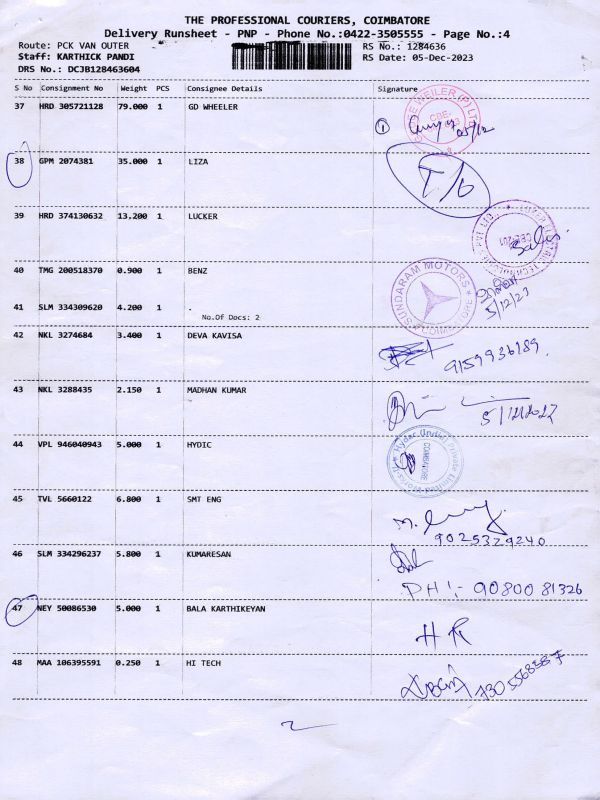 THE PROFESSIONAL COURIERS, COIMBATORE
Delivery Runsheet - PNP - Phone No.:0422-3505555 - Page No.:4
Route: PCK VAN OUTER RS No.: 1284636
Staff: KARTHICK PANDI RS Date: 05-Dec-2023
DRS No.: DCJB128463604
S No Consignment No Weight PCS Consignee Details Signature
37 HRD 305721128 79.000 1 GD WHEELER
38 GPM 2074381 35.000 1 LIZA
T/6
39 HRD 374130632 13.200 1 LUCKER
40 TMG 200518370 0.900 1 BENZ
SUNDARAM MOTORS
COIMBATORE
5/12/23
41 SLM 334309620 4.200 1 .
No.Of Docs: 2
42 NKL 3274684 3.400 1 DEVA KAVISA
9159936189.
43 NKL 3288435 2.150 1 MADHAN KUMAR
44 VPL 946040943 5.000 1 HYDIC
Hydac (India) Private Limited
COIMBATORE
45 TVL 5660122 6.800 1 SMT ENG
9025329240
46 SLM 334296237 5.800 1 KUMARESAN
PH:- 9080081326
47 NEY 50086530 5.000 1 BALA KARTHIKEYAN
HR
48 MAA 106395591 0.250 1 HI TECH